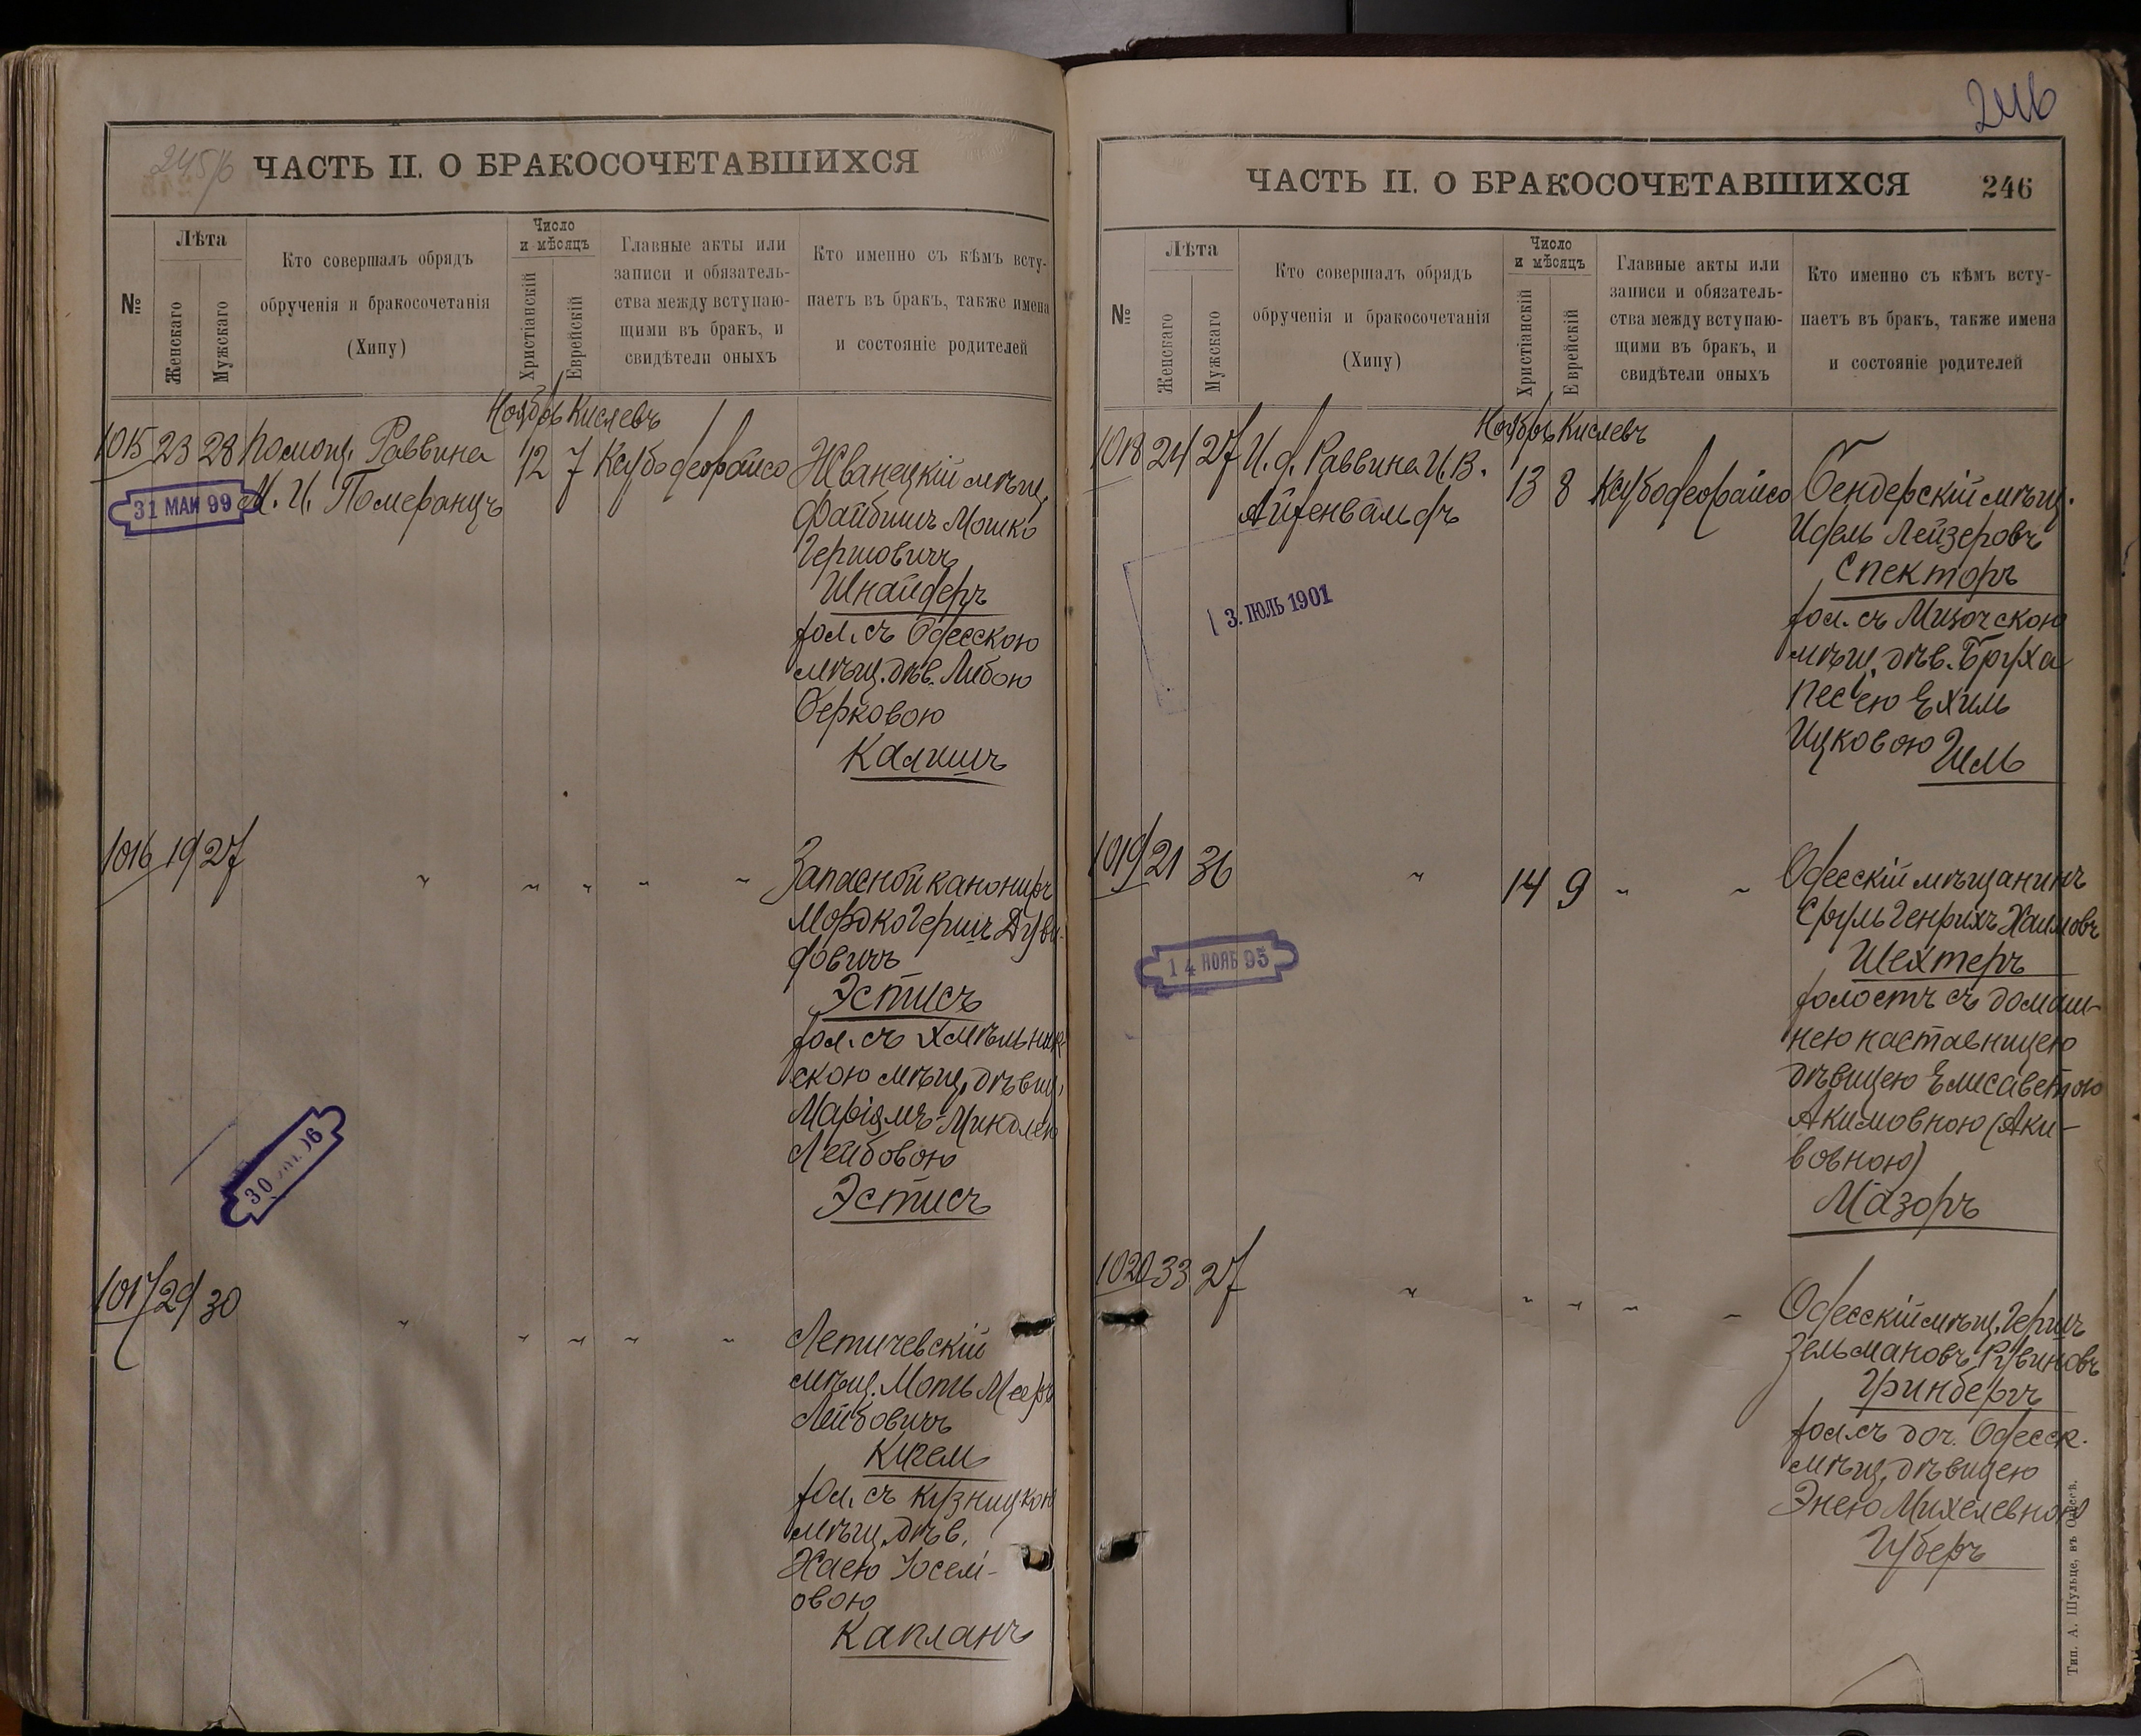 246
245/б
ЧАСТЬ II. О БРАКОСОЧЕТАВШИХСЯ
№
Лѣта
Женскаго
Мужскаго
Кто совершалъ обрядъ
обрученія и бракосочетанія
(Хипу)
Число
и мѣсяцъ
Христіанскій
Еврейскій
Главные акты или
записи и обязатель-
ства между вступаю-
щими въ бракъ, и
свидѣтели оныхъ
Кто именно съ кѣмъ всту-
паетъ въ бракъ, также имена
и состояніе родителей
Ноябрь Кислевъ
1015 23 28 Помощ. Раввина 12 7 Ксубо деорайсо Жванецкій мѣщ.
М. И. Померанцъ
31 МАИ 99
Файбишъ Мошко
Гершовичъ
Шнайдеръ
хол. съ Одесскою
мѣщ. дѣв. Либою
Берковою
Калишъ
1016 19 27 " " " " " Запасной канониръ
Мордко Гершъ Дуви-
довичъ
Эстисъ
хол. съ Хмѣльник-
скою мѣщ. дѣвиц.
Маріямъ-Миндлею
Лейбовою
Эстисъ
30 06
1017 29 30 " " " " " Летичевскій
мѣщ. Моть Мееръ
Лейбовичъ
Кигель
хол. съ Кузницкою
мѣщ. дѣв.
Хаею Іосей-
овою
Капланъ
ЧАСТЬ II. О БРАКОСОЧЕТАВШИХСЯ 246
№
Лѣта
Женскаго
Мужскаго
Кто совершалъ обрядъ
обрученія и бракосочетанія
(Хипу)
Число
и мѣсяцъ
Христіанскій
Еврейскій
Главные акты или
записи и обязатель-
ства между вступаю-
щими въ бракъ, и
свидѣтели оныхъ
Кто именно съ кѣмъ всту-
паетъ въ бракъ, также имена
и состояніе родителей
Ноябрь Кислевъ
1018 24 27 И. д. Раввина И. В. 13 8 Ксубо деорайсо Бендерскій мѣщ.
Айзенвальдъ
3. ІЮЛЬ 1901
Идель Лейзеровъ
Спекторъ
хол. съ Мизочскою
мѣщ. дѣв. Бруха
Песею Ехиль
Ицковою Гиль
1019 21 36 " 14 9 " " Одесскій мѣщанинъ
Сруль Генрихъ Хаимовъ
Шехтеръ
холостъ съ домаш-
нею наставницею
дѣвицею Елисаветою
Акимовною (Аки-
вовною)
Мазоръ
14 НОЯБ 95
1020 33 27 " " " " " Одесскій мѣщ. Гершъ
Зельмановъ Рувиновъ
Гринбергъ
хол. съ доч. Одесск.
мѣщ. дѣвицею
Энею Михелевною
Губеръ
Тип. А. Шульце, въ Одессѣ.